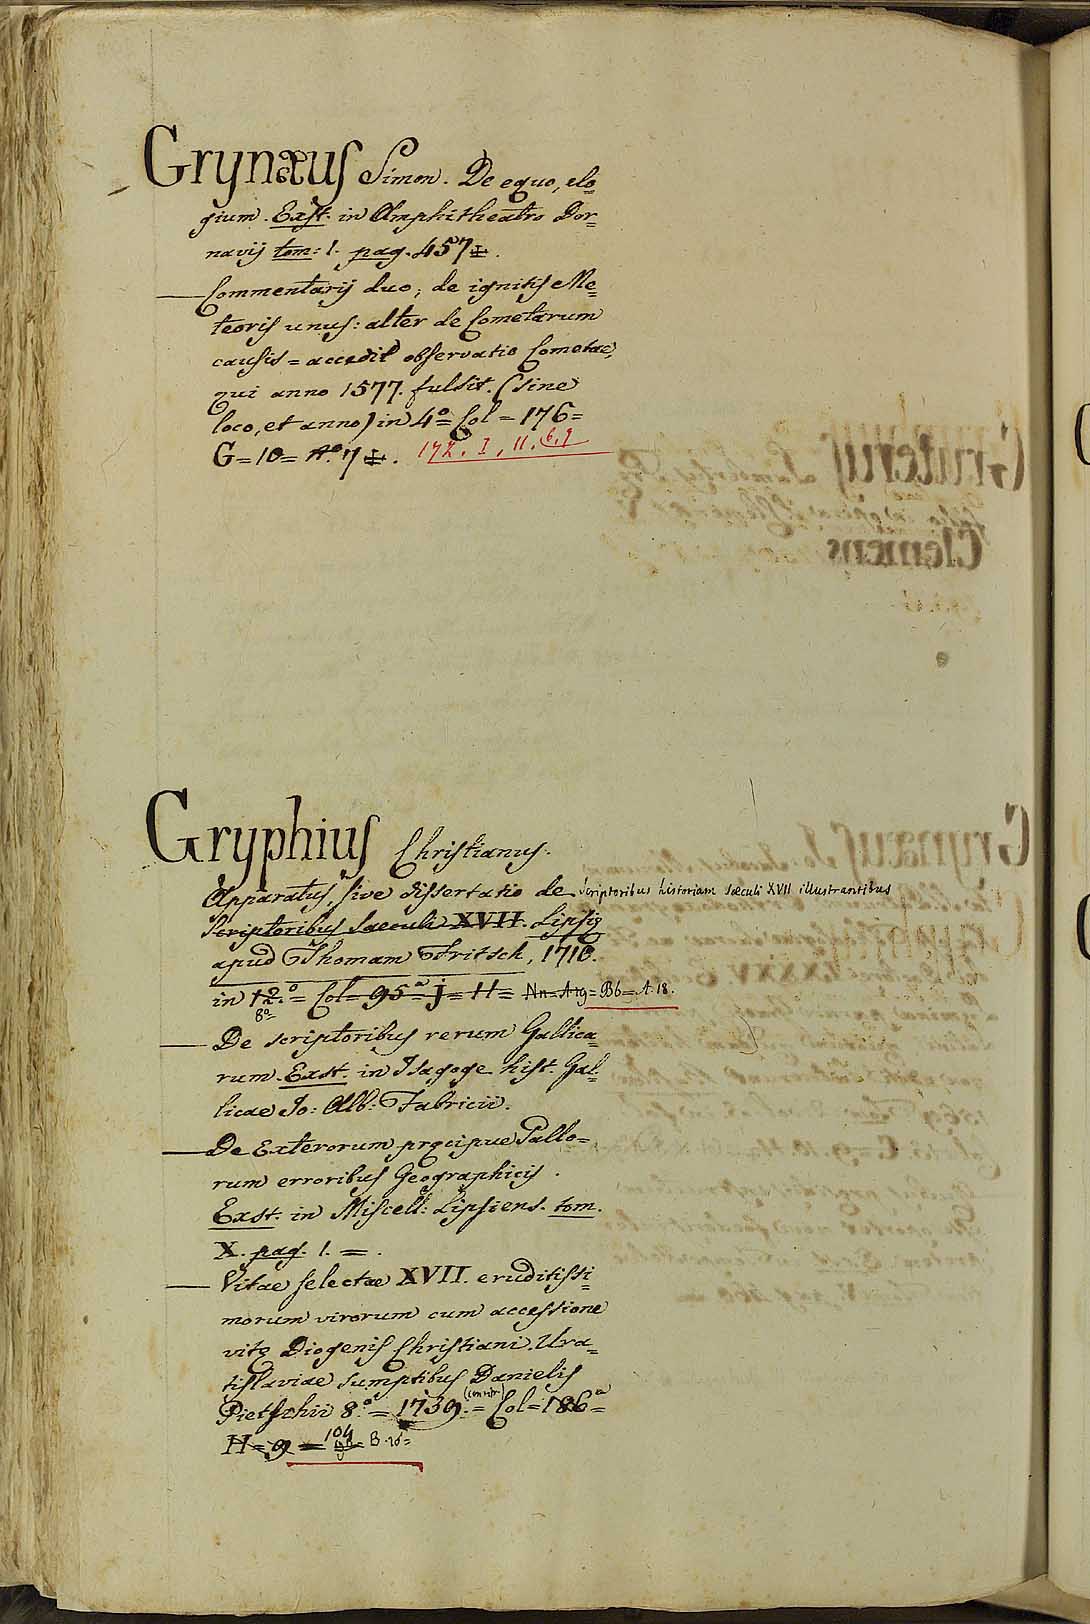 Grynæus Simon. De equo, elo=
gium. Exst. in Amphitheatro Dor=
navij tom: 1. pag. 457
Commentarij duo; de ignitis Me=
teoris unus: alter de Cometarum
causis = accedit observatio Cometae,
qui anno 1577. fulsit. (sine
loco, et anno) in 4º = Col = 176 =
G = 10 = Nº. 7 . 172. I, 11.
Gryphius Christianus.
Apparatus, sive dissertatio de scriptoribus historiam sæculi XVII illustrantibus
Scriptoribus Saeculi XVII. Lipsię
apud Thomam Fritsch, 1710.
in 12.º = Col = 95ª = j = 11 = = Bb = A. 18.
8º
De scriptoribus rerum Gallica=
rum. Exst. in Isagoge hist. Gal=
licae Jo: Alb: Fabricii.
De Exterorum pręcipue Gallo=
rum erroribus Geographicis.
Exst. in Miscell: Lipsiens. tom.
X. pag. 1. = .
Vitae selectae XVII. eruditissi=
morum virorum cum accessione
vitę Diogenis Christiani. Ura=
tislaviae sumptibus Danielis
Pietschii 8.º = 1739. = Col = 186ª =
H = 9 = 104 B.